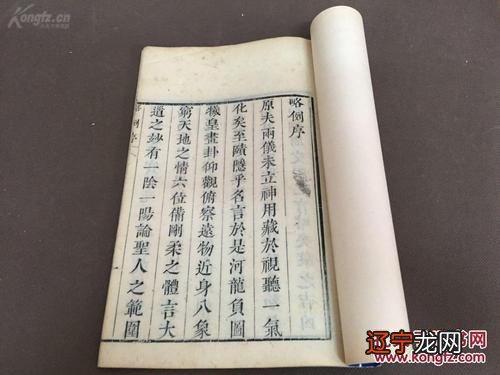 Kongfz.cn
略例序
原夫兩儀未立神用藏於視聽一氣
化矣至賾隱乎名言於是河龍負圖
犧皇畫卦仰觀俯察遠物近身八象
窮天地之情六位備剛柔之體言大
道之妙有一陰一陽論聖人之範圍
例序
辽宁龙网
书网
www.kongfz.com